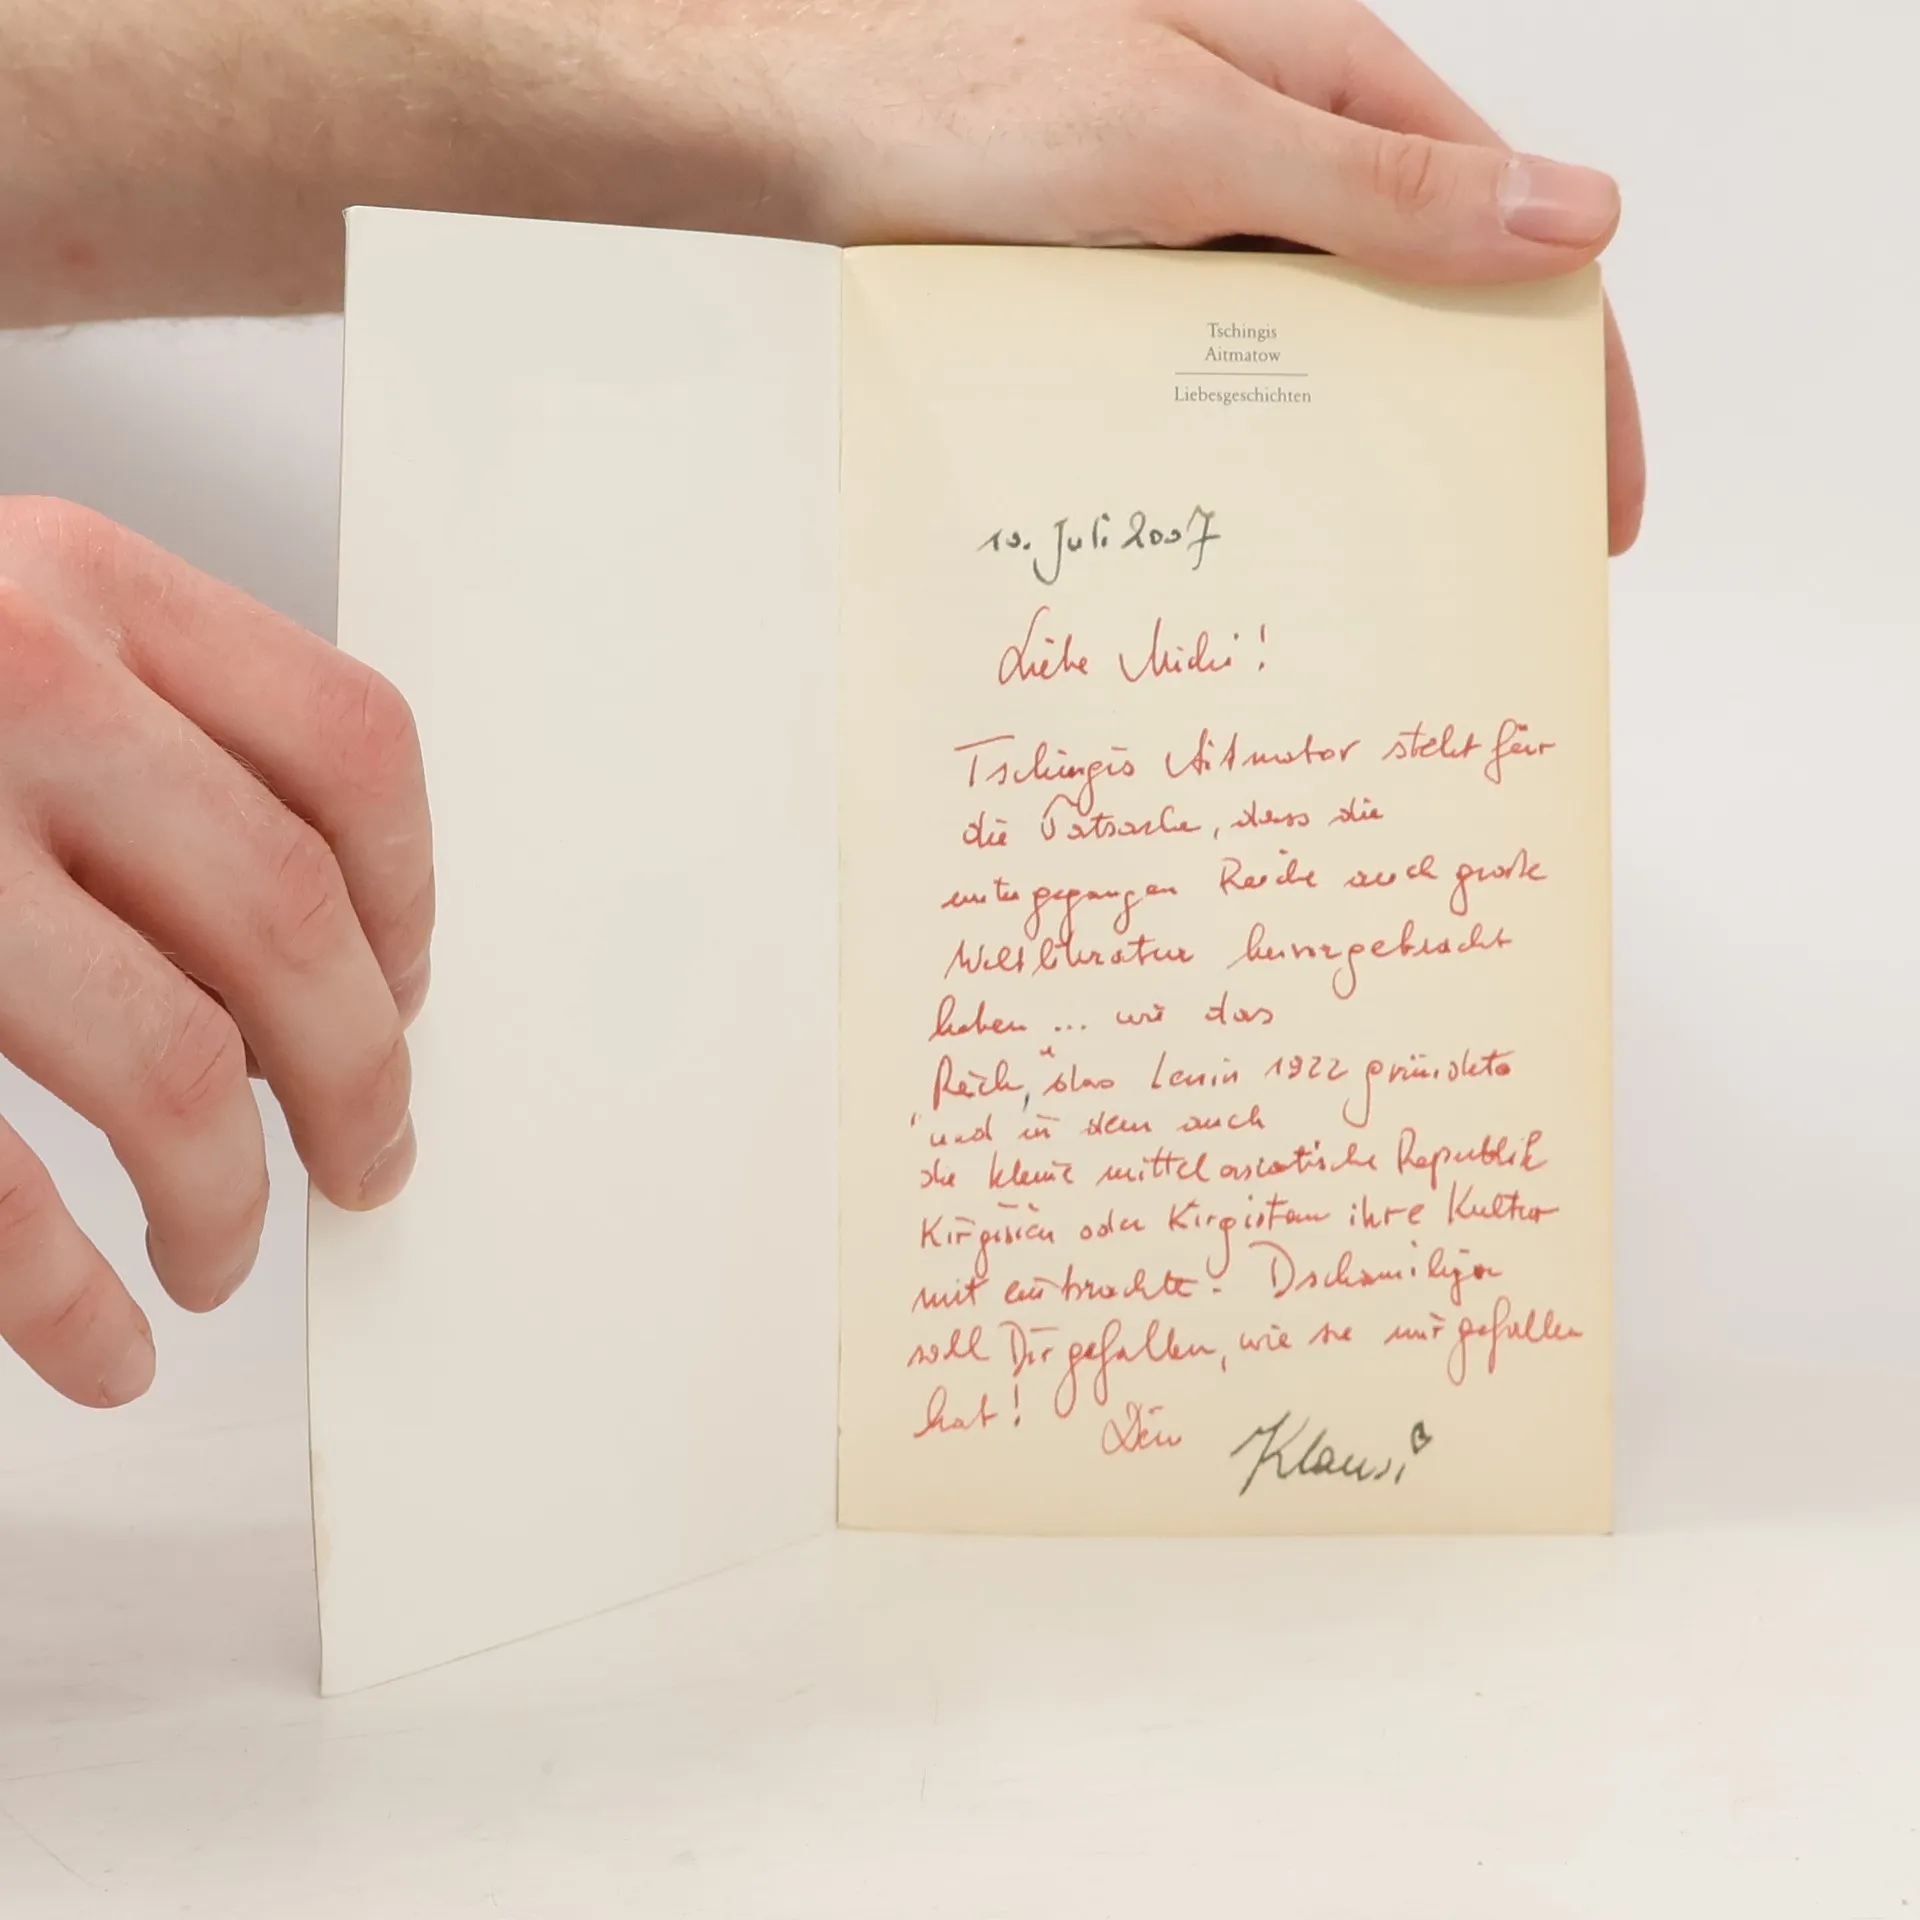 Tschingis
Aitmatow
Liebesgeschichten
10. Juli 2007
Liebe Michi!
Tschingis Aitmatov steht für
die Tatsache, dass die
untergegangen Reiche auch große
Weltliteratur hervorgebracht
haben ... wie das
Reich, das Lenin 1922 gründete
und in dem auch
die kleine mittelasiatische Republik
Kirgisien oder Kirgistan ihre Kultur
mit einbrachte. Dschamilija
soll Dir gefallen, wie sie mir gefallen
hat! Dein Klausi